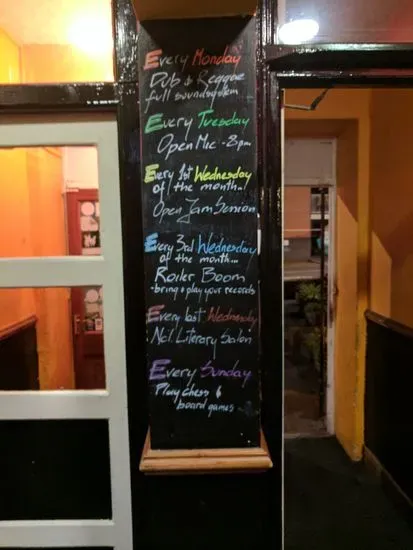 Every Monday
Dub & Reggae
full soundsystem
Every Tuesday
Open Mic - 8pm
Every 1st Wednesday
of the month...
Open Jam Session
Every 3rd Wednesday
of the month...
Roiler Boom
-bring & play your records
Every last Wednesday
No1. Literary Salon
Every Sunday
Play chess &
board games...